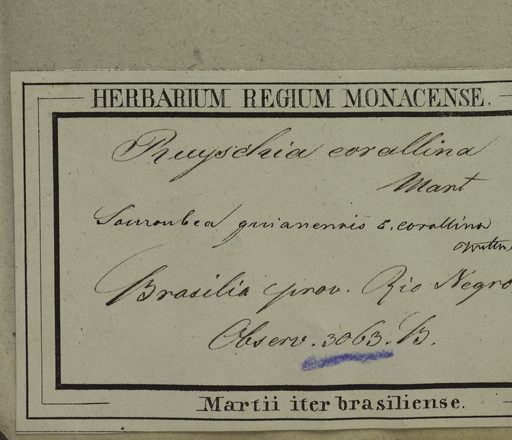 HERBARIUM REGIUM MONACENSE.
Ruyschia corallina
Mart
Souroubea guianensis β. corallina
Wittm
Brasilia prov. Rio Negro
Observ. 3063. B.
Martii iter brasiliense.